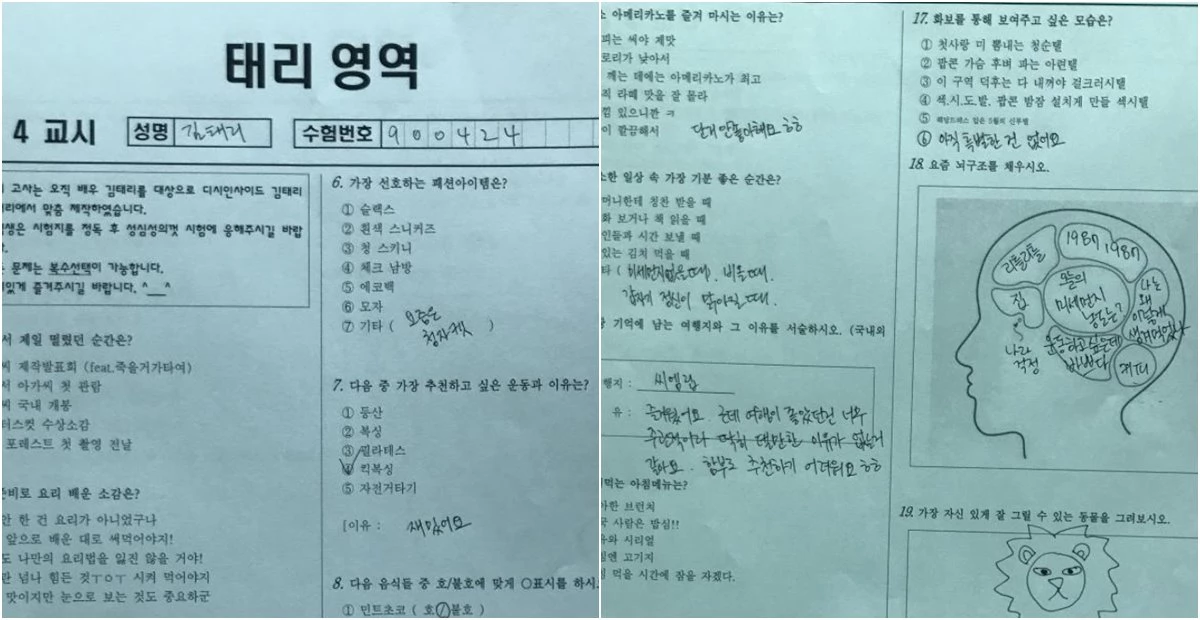 태리 영역
4 교시
성명 김태리
수험번호 900424
고사는 오직 배우 김태리를 대상으로 디시인사이드 김태리
리에서 맞춤 제작하였습니다.
생은 시험지를 정독 후 성심성의껏 시험에 응해주시길 바랍
문제는 복수선택이 가능합니다.
있게 즐겨주시길 바랍니다. ^__^
서 제일 떨렸던 순간은?
씨 제작발표회 (feat.죽을거가타여)
서 아가씨 첫 관람
씨 국내 개봉
터스컷 수상소감
포레스트 첫 촬영 전날
준비로 요리 배운 소감은?
안 한 건 요리가 아니었구나
앞으로 배운 대로 써먹어야지!
도 나만의 요리법을 잃진 않을 거야!
만 넘나 힘든 것ㅜㅇㅜ 시켜 먹어야지
맛이지만 눈으로 보는 것도 중요하군
6. 가장 선호하는 패션아이템은?
① 슬랙스
② 흰색 스니커즈
③ 청 스키니
④ 체크 남방
⑤ 에코백
⑥ 모자
⑦ 기타 ( 요즘은 청자켓 )
7. 다음 중 가장 추천하고 싶은 운동과 이유는?
① 등산
② 복싱
③ 필라테스
④ 킥복싱
⑤ 자전거타기
[이유 : 재밌어요
8. 다음 음식들 중 호/불호에 맞게 ○표시를 하시오.
① 민트초코 ( 호/불호 )
아메리카노를 즐겨 마시는 이유는?
피는 써야 제맛
로리가 낮아서
깨는 데에는 아메리카노가 최고
직 라떼 맛을 잘 몰라
있으니깐 ㅋ
이 깔끔해서
단거 안좋아해요 ㅎㅎ
소한 일상 속 가장 기분 좋은 순간은?
머니한테 칭찬 받을 때
화 보거나 책 읽을 때
인들과 시간 보낼 때
있는 김치 먹을 때
타 ( 미세먼지없을때), 비올때,
갑자기 정신이 맑아질때.
기억에 남는 여행지와 그 이유를 서술하시오. (국내외
행지 : 씨엠립
유 : 즐거웠어요. 근데 여행이 좋았던건 너무
주관적이라 딱히 댈만한 이유가 없는거
같아요. 함부로 추천하기 어려워요 ㅎㅎ
먹는 아침메뉴는?
아한 브런치
국 사람은 밥심!!
유와 시리얼
침엔 고기지
먹을 시간에 잠을 자겠다.
17. 화보를 통해 보여주고 싶은 모습은?
① 첫사랑 미 뽐내는 청순텔
② 팝콘 가슴 후벼 파는 아련텔
③ 이 구역 덕후는 다 내꺼야 걸크러시텔
④ 섹.시.도.발. 팝콘 밤잠 설치게 만들 섹시텔
⑤ 웨딩드레스 입은 5월의 신부텔
⑥ 아직 특별한 건 없어요
18. 요즘 뇌구조를 채우시오.
리틀리틀
1987 1987
집
오늘의 미세먼지 농도는?
나는 왜 이렇게 생겨먹었나
나라 걱정
운동하고싶은데 바쁘다
커피
19. 가장 자신 있게 잘 그릴 수 있는 동물을 그려보시오.